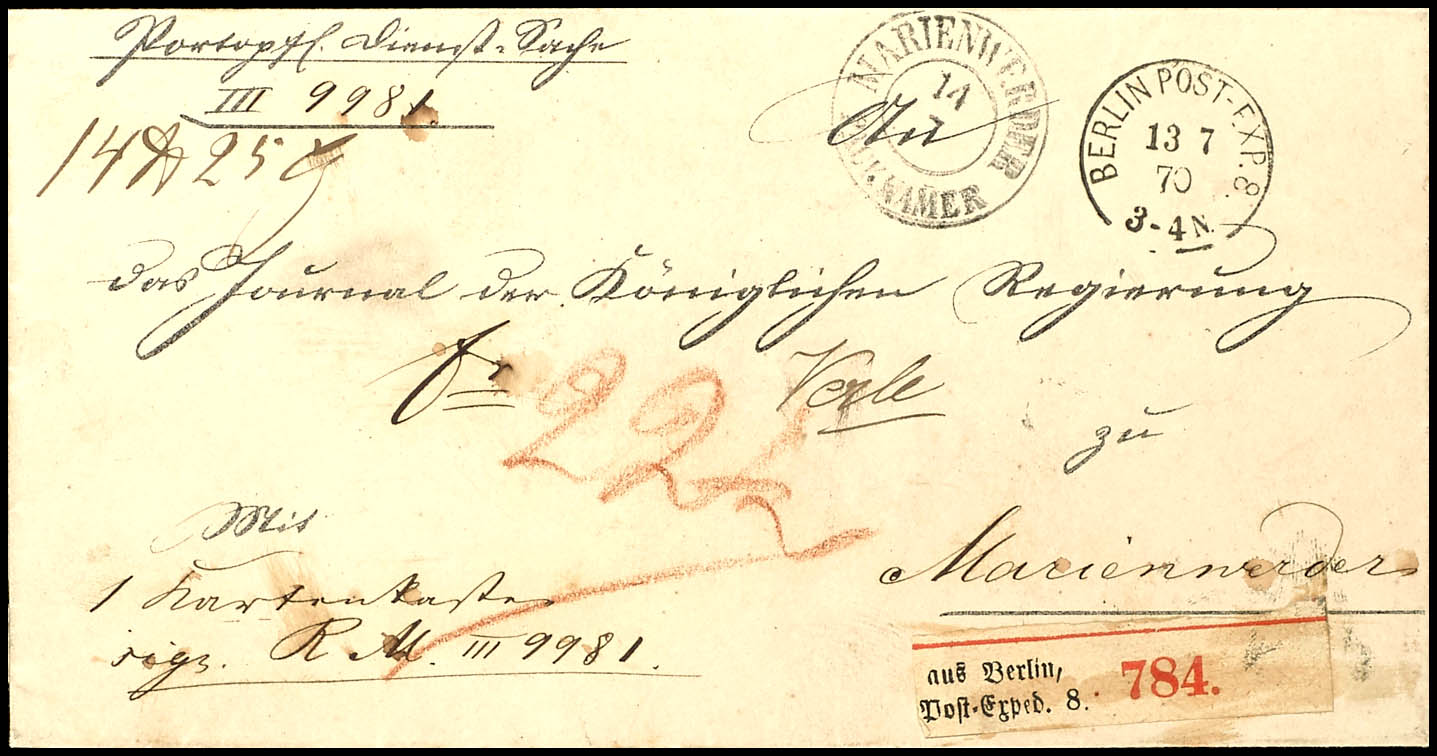 Portopfl. Dienst-Sache
III 9981.
14 ℔ 25
MARIENWERDER
14
7
PACK.KAMER
BERLIN POST-EXP. 8.
13 7
70
3-4 N.
An
das Journal der Königlichen Regierung
zu
Marienwerder
Mit
1 Kartenkasten
sign. R. M. III 9981.
aus Berlin,
Post-Exped. 8.
784.